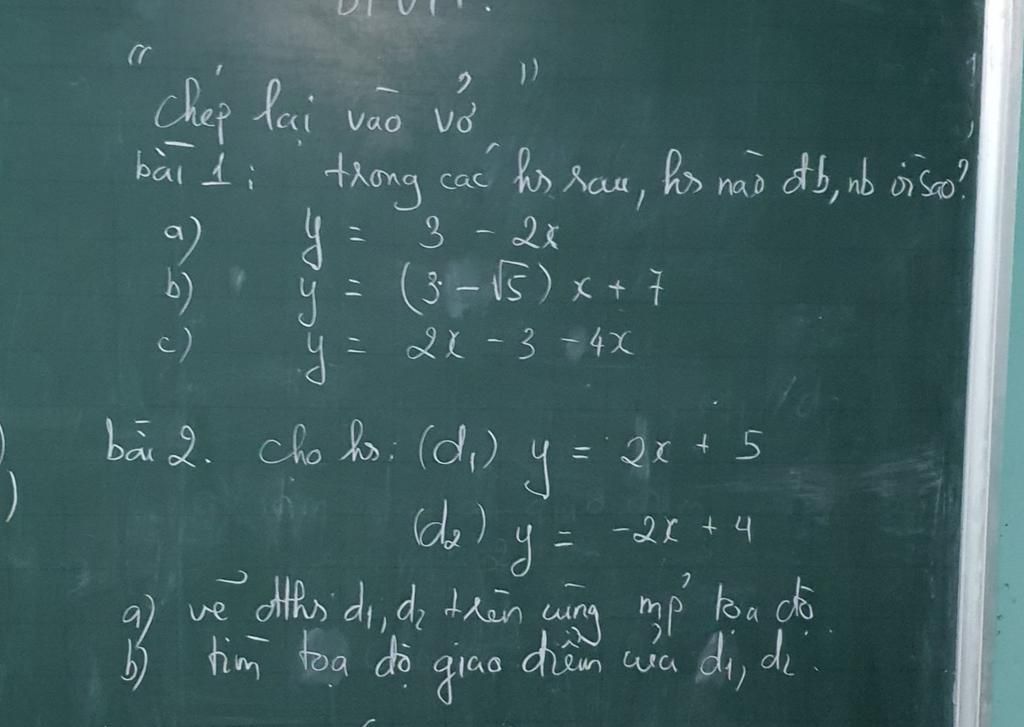 "Chép lại vào vở"
bài 1: trong các hs sau, hs nào đb, nb vì sao?
a) y = 3 - 2x
b) y = (3 - √5) x + 7
c) y = 2x - 3 - 4x
bài 2. Cho hs: (d₁) y = 2x + 5
(d₂) y = -2x + 4
a) vẽ đths d₁, d₂ trên cùng mp tọa độ.
b) tìm tọa độ giao điểm của d₁, d₂.